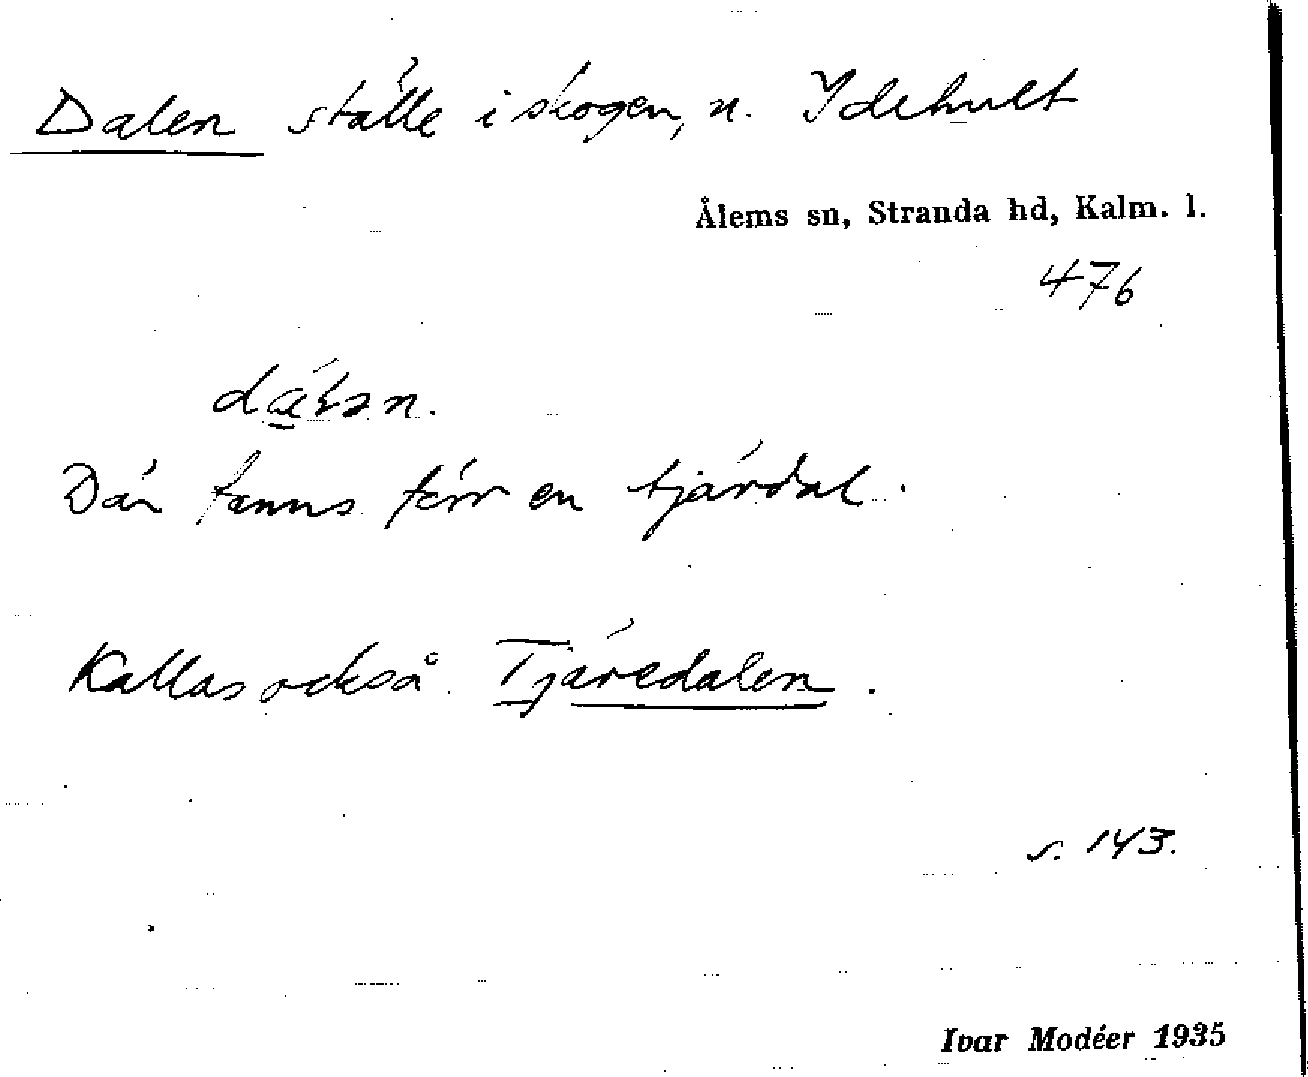 Dalen ställe i skogen, n. Idehult
Ålems sn, Stranda hd, Kalm. l.
476
Där fanns förr en tjärdal.
Kallas också Tjäredalen.
s. 143.
Ivar Modéer 1935